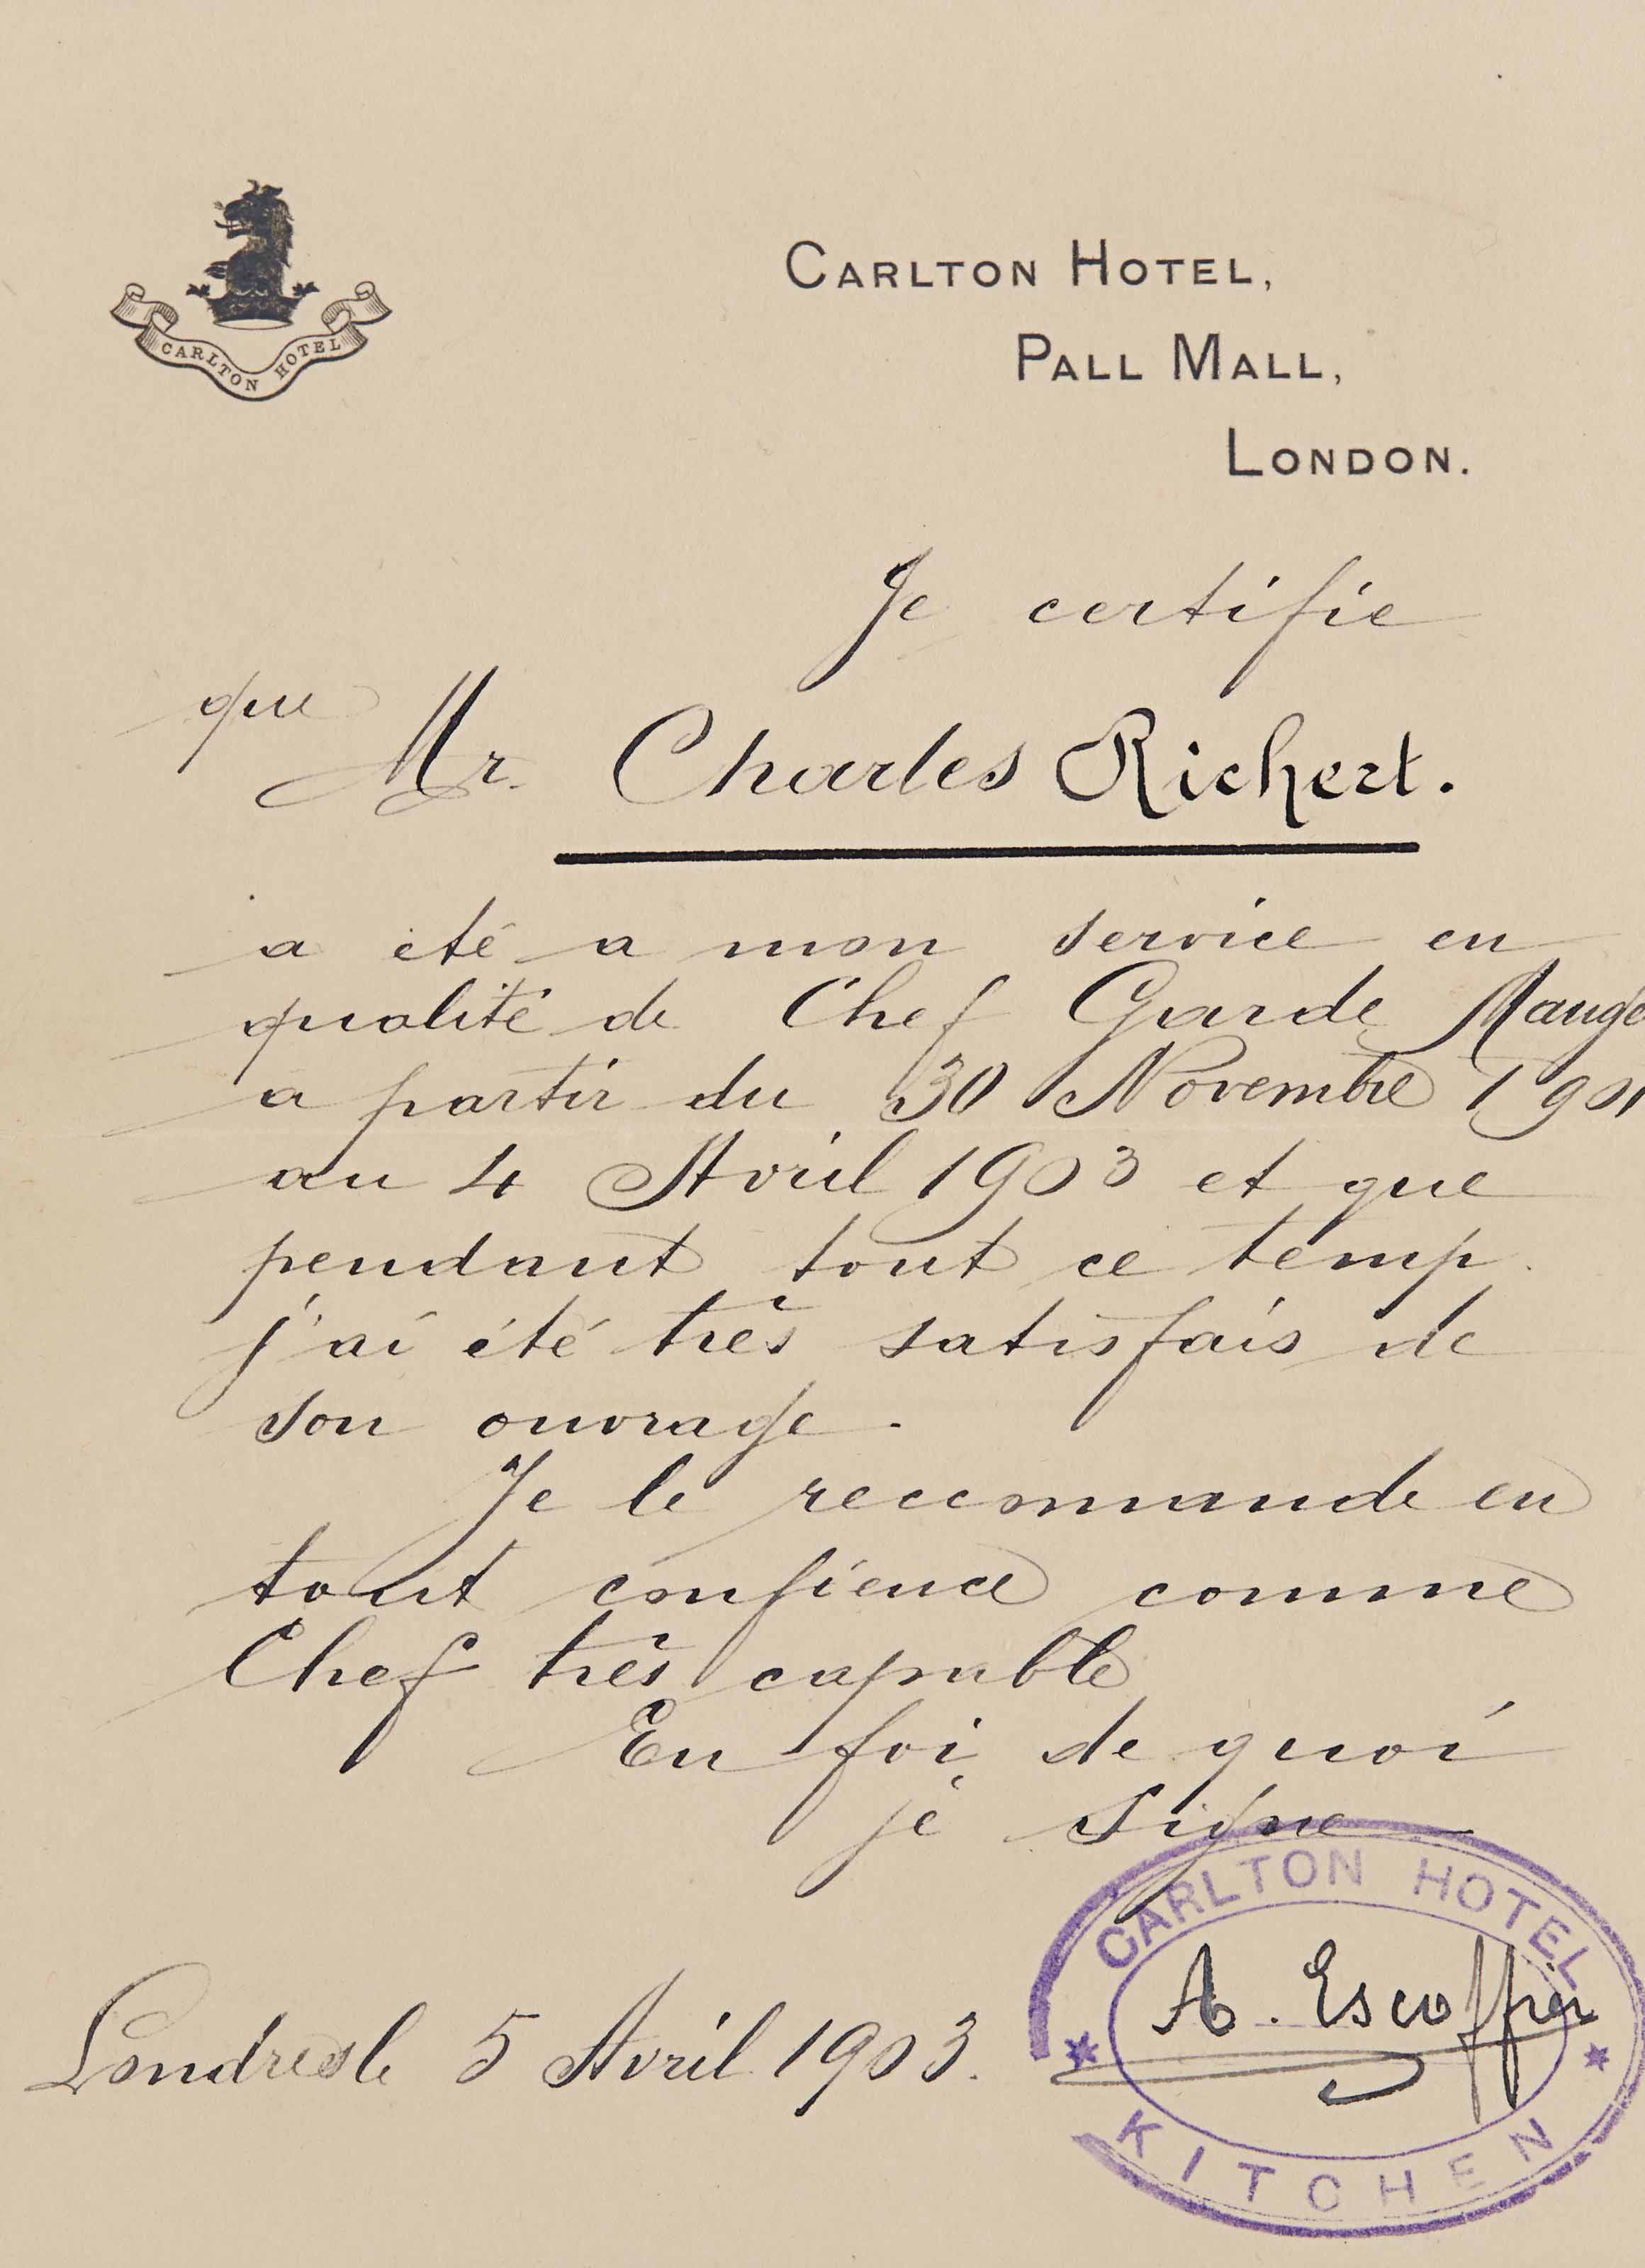 CARLTON HOTEL
CARLTON HOTEL,
PALL MALL,
LONDON.
Je certifie
que Mr. Charles Richert.
a été a mon service en
qualité de Chef Garde Mange
a partir du 30 Novembre 1901
au 4 Avril 1903 et que
pendant tout ce temp.
j'ai été très satisfais de
son ouvrage.
Je le recommande en
tout confience comme
Chef très capable
En foi de quoi
je signe
CARLTON HOTEL
A. Escoffier
Londres le 5 Avril 1903.
KITCHEN